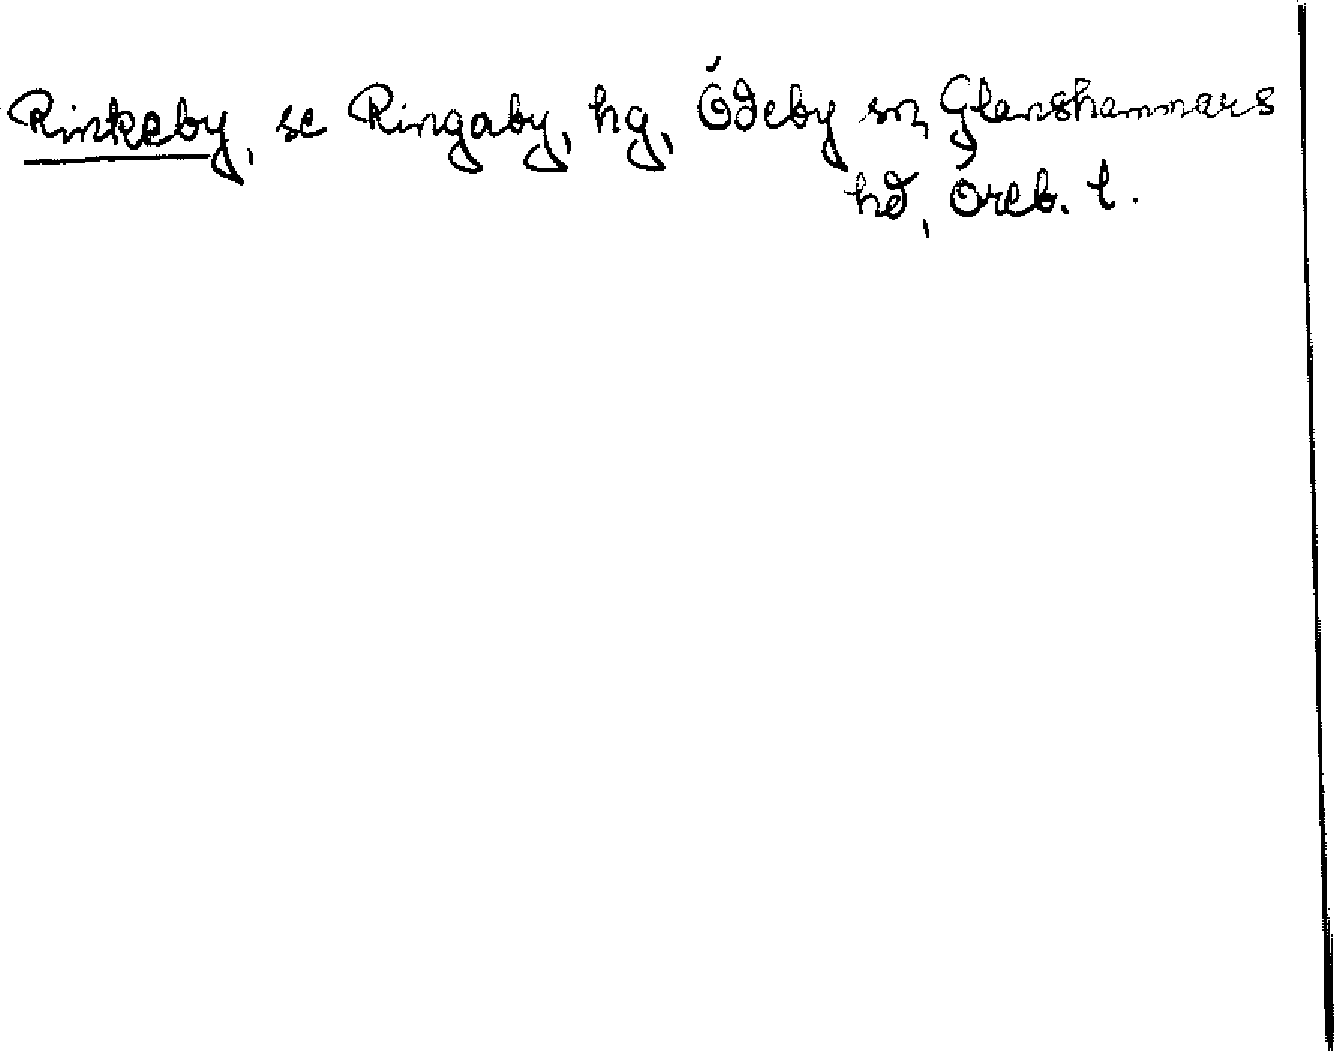 Rinkeby, se Ringaby, hg, Ödeby sn, Glanshammars
hd, Öreb. l.